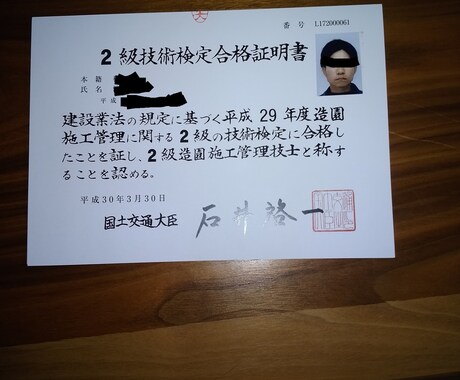 番号 L172000061
2級技術検定合格証明書
本籍
氏名
平成
建設業法の規定に基づく平成29年度造園
施工管理に関する2級の技術検定に合格し
たことを証し、2級造園施工管理技士と称す
ることを認める。
平成30年3月30日
国土交通大臣 石井啓一